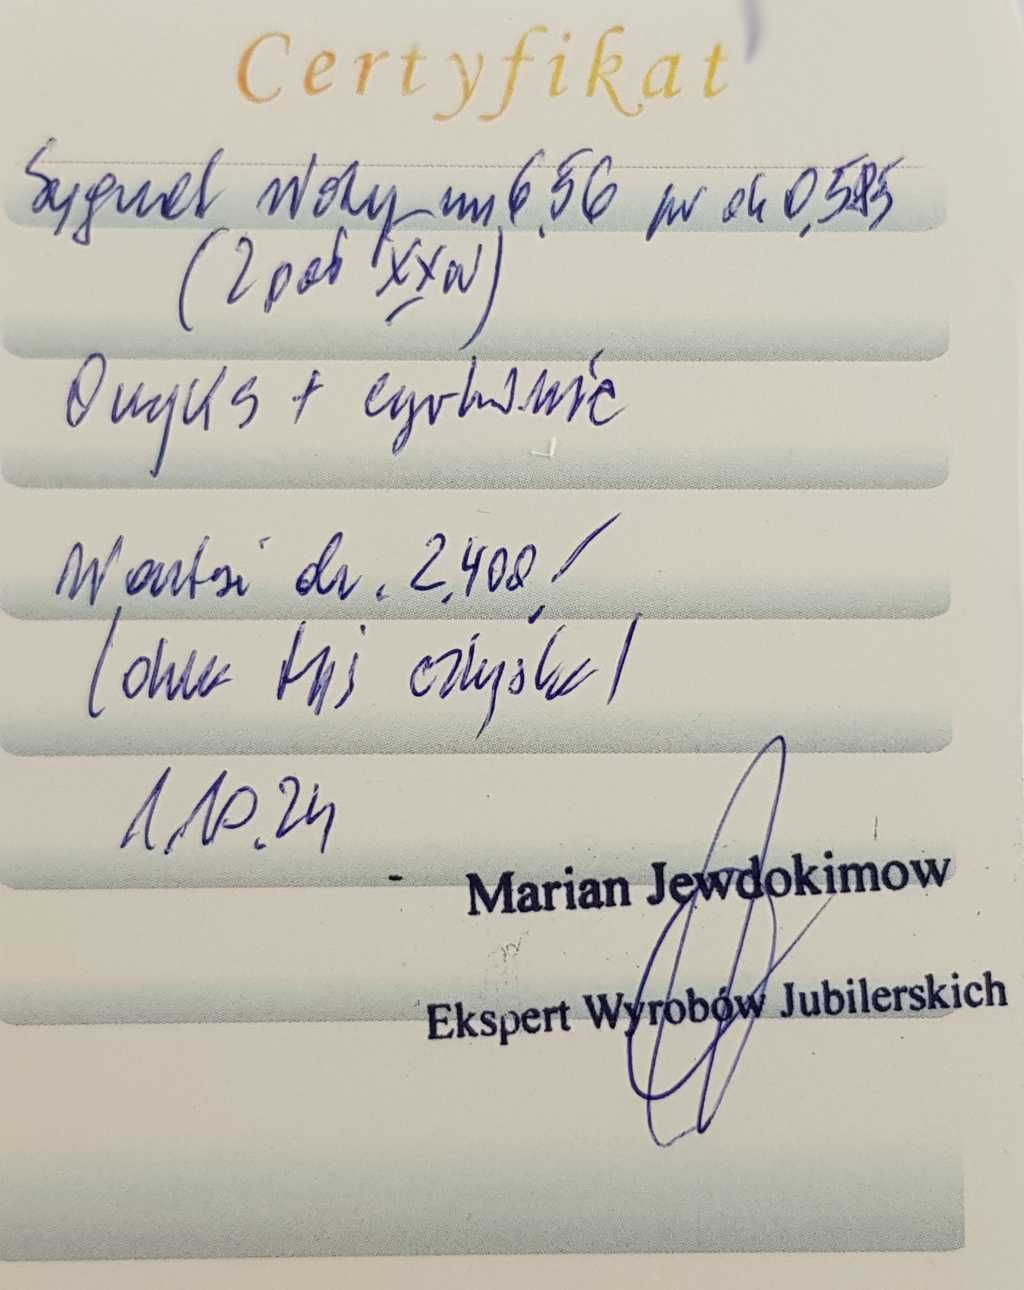 Certyfikat
Sygnet złoty m 6,56 pr ok 0,585
(2 poł XXw)
Onyks + cyrkonie
Wartość ok. 2.400,/
(dwa tyś czterysta)
1.10.24
Marian Jewdokimow
Ekspert Wyrobów Jubilerskich